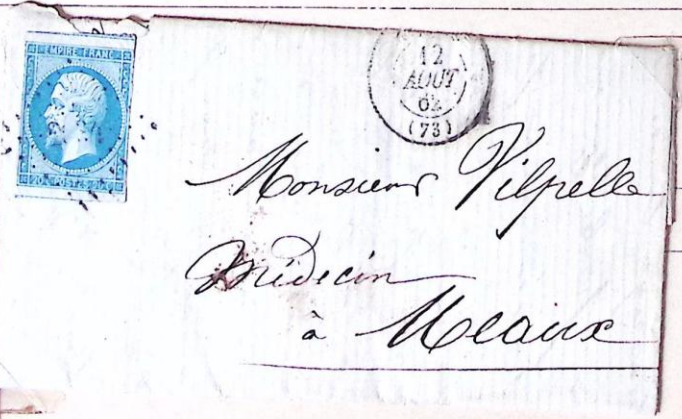 EMPIRE FRANC
12
AOUT
62
(73)
Monsieur Vilpelle
Médecin
à Meaux